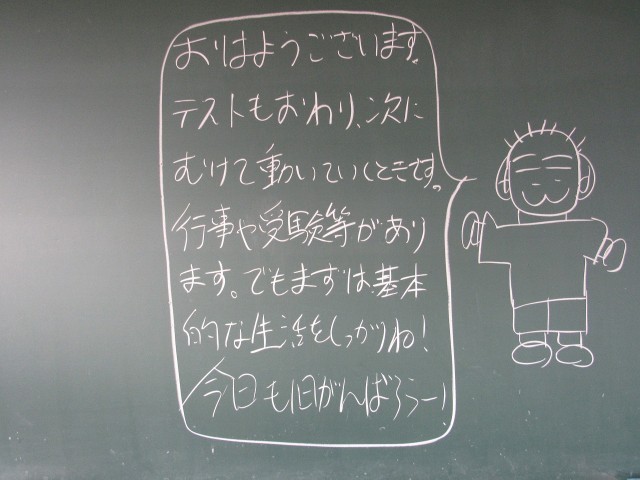 おはようございます。
テストもおわり、次に
むけて動いていくときです。
行事や受験等があり
ます。でもまずは基本
的な生活をしっかりね！
今日も1日がんばろうー！